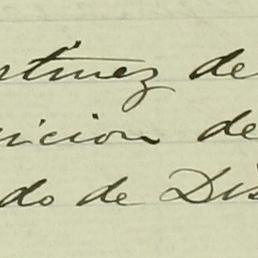 rtinez de
icion de
do de Dis